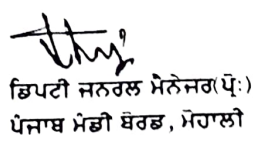 ਡਿਪਟੀ ਜਨਰਲ ਮੈਨੇਜਰ(ਪ੍ਰੋ:)
ਪੰਜਾਬ ਮੰਡੀ ਬੋਰਡ, ਮੋਹਾਲੀ